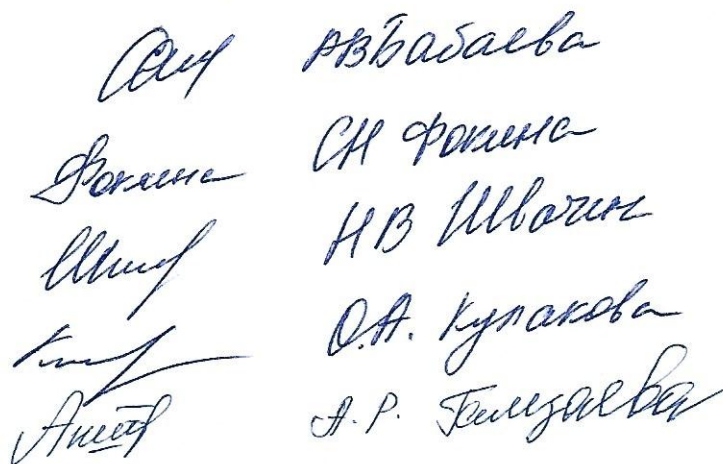 АВ Бабаева
Фокина СН Фокина
НВ Швачин
О.А. Кулакова
А.Р. Гамзаева